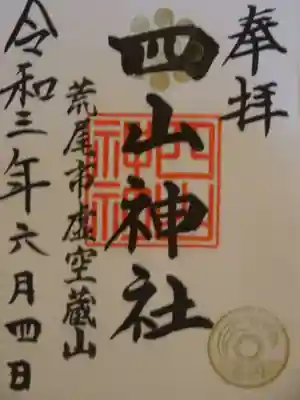 奉拝
四山神社
四山神社
荒尾市虚空蔵山
令和三年六月四日